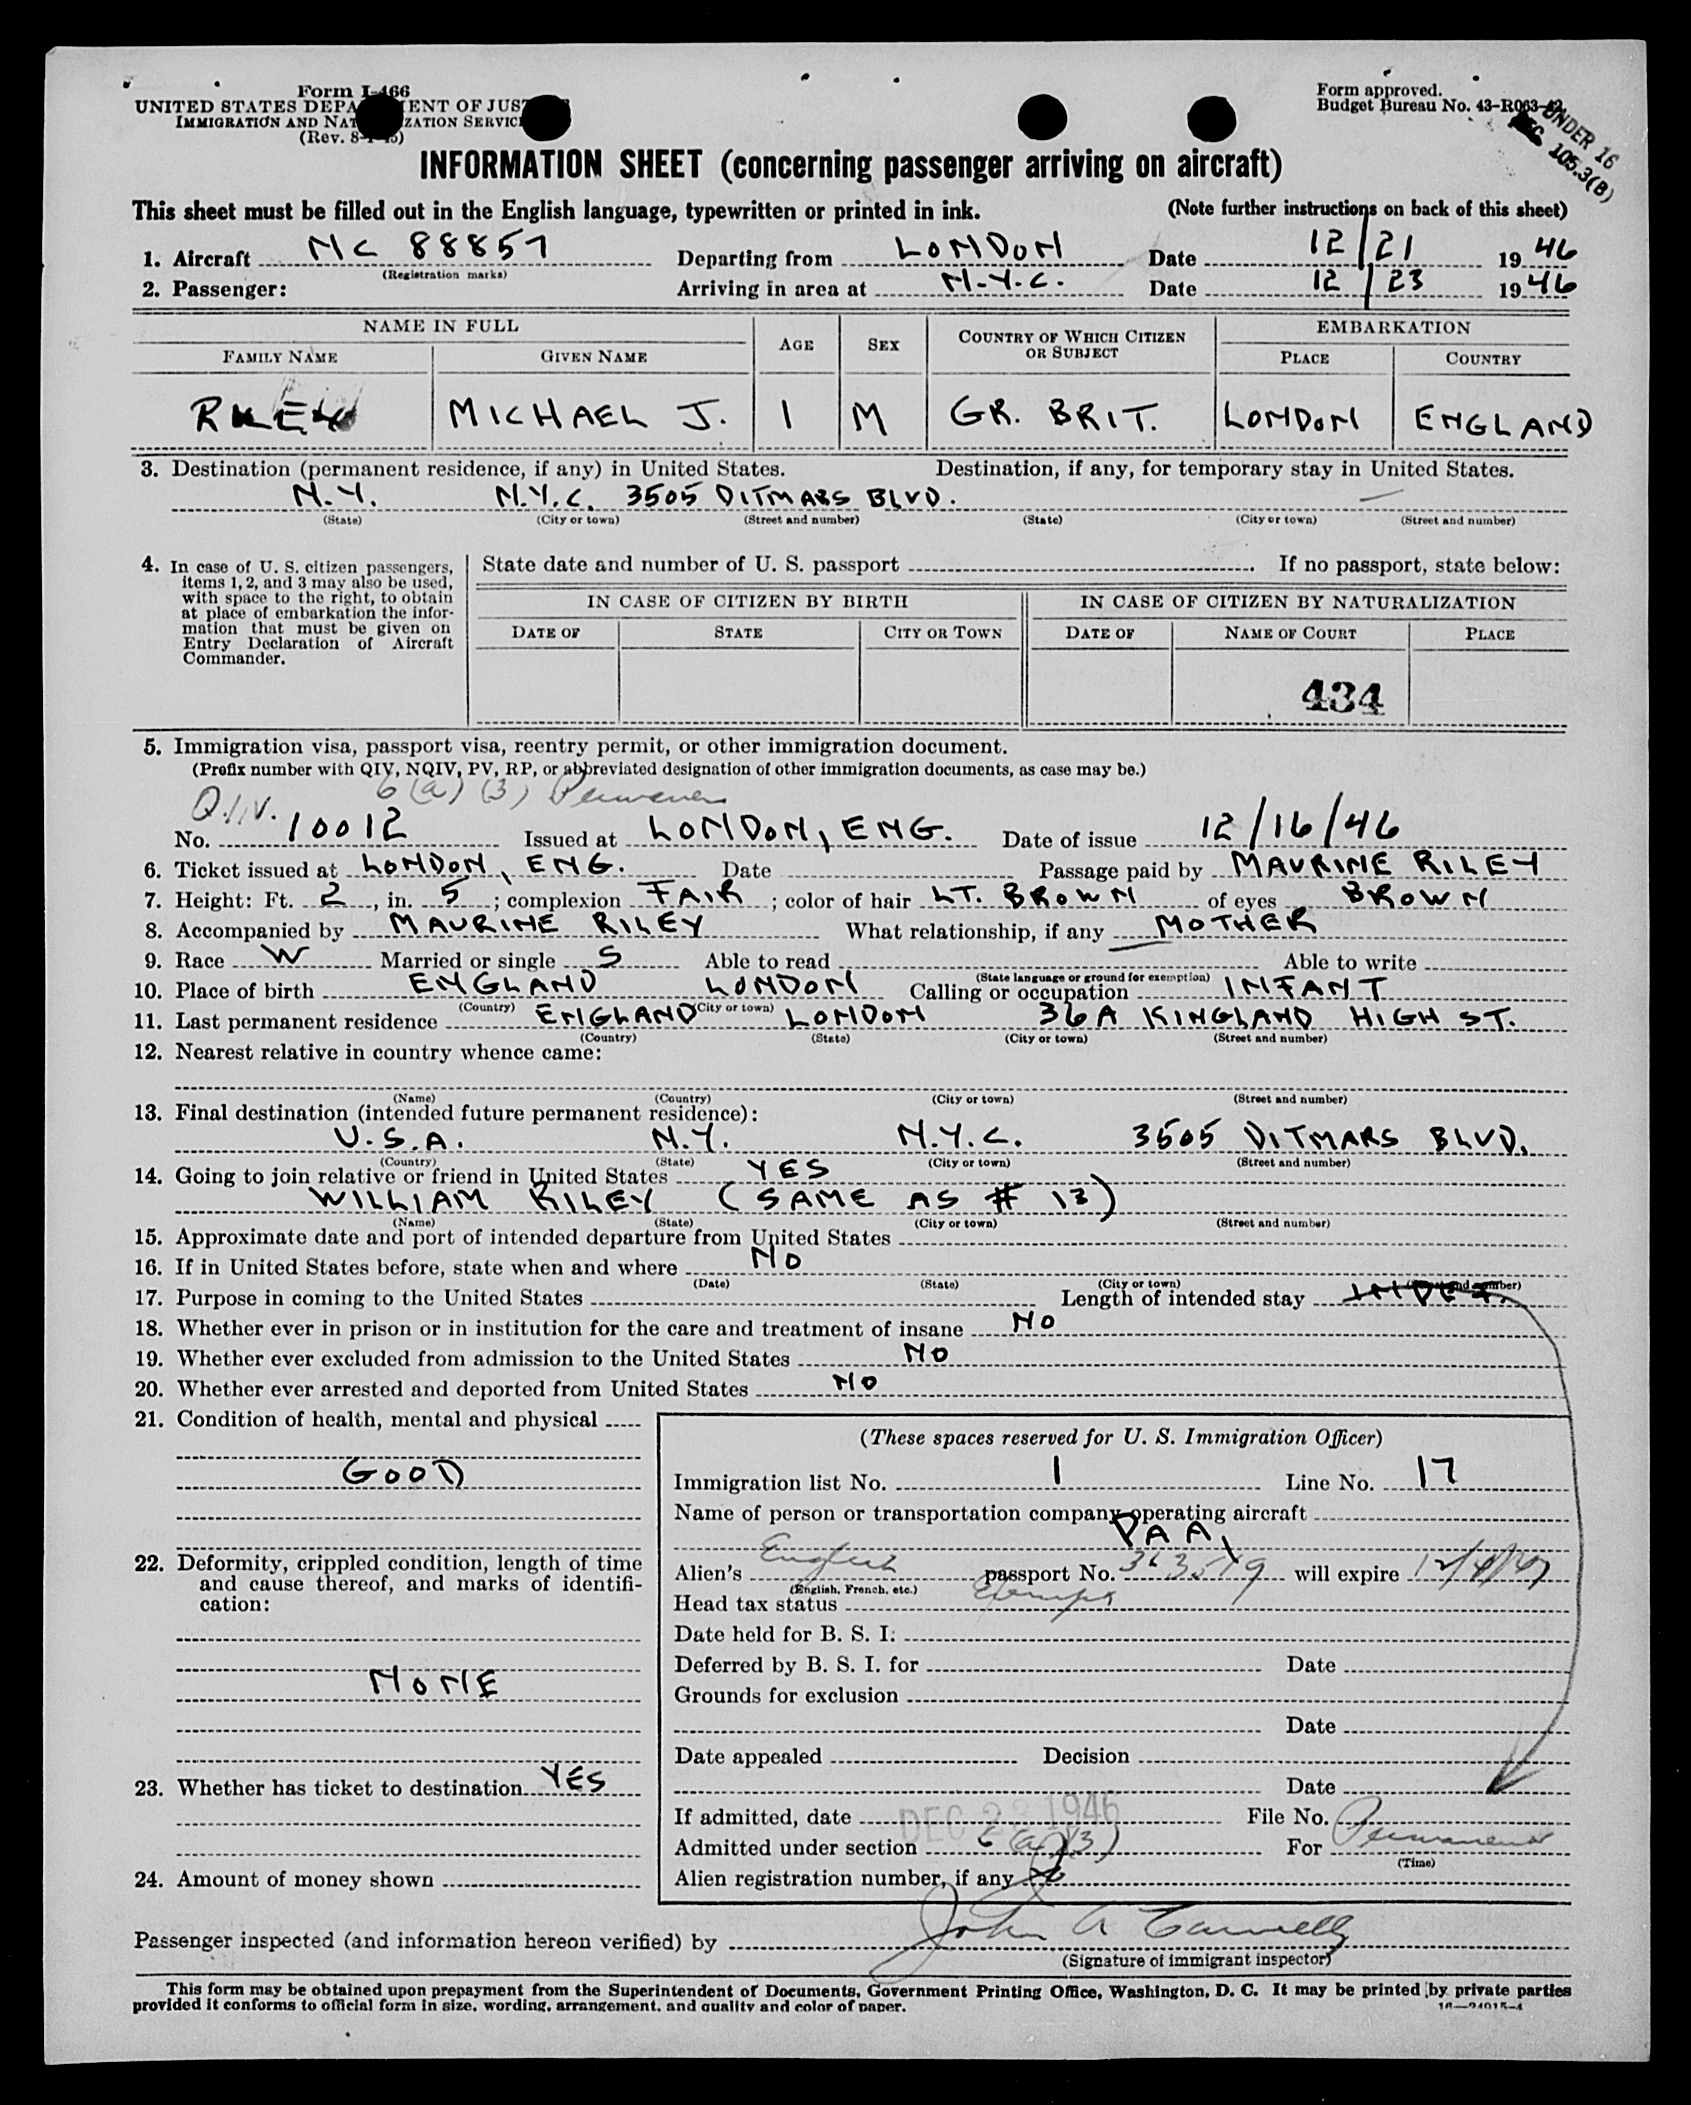 Form I-466
UNITED STATES DEPARTMENT OF JUSTICE
IMMIGRATION AND NATURALIZATION SERVICE
(Rev. 8-1-45)
Form approved.
Budget Bureau No. 43-R063-42
UNDER 16
SEC 105.3(B)
INFORMATION SHEET (concerning passenger arriving on aircraft)
This sheet must be filled out in the English language, typewritten or printed in ink. (Note further instructions on back of this sheet)
1. Aircraft NC 88857 Departing from LONDON Date 12/21 1946
(Registration marks)
2. Passenger: Arriving in area at N.Y.C. Date 12/23 1946
NAME IN FULL AGE SEX COUNTRY OF WHICH CITIZEN OR SUBJECT EMBARKATION
FAMILY NAME GIVEN NAME PLACE COUNTRY
RILEY MICHAEL J. 1 M GR. BRIT. LONDON ENGLAND
3. Destination (permanent residence, if any) in United States. Destination, if any, for temporary stay in United States.
N.Y. N.Y.C. 3505 DITMARS BLVD. —
(State) (City or town) (Street and number) (State) (City or town) (Street and number)
4. In case of U. S. citizen passengers, items 1, 2, and 3 may also be used, with space to the right, to obtain at place of embarkation the information that must be given on Entry Declaration of Aircraft Commander.
State date and number of U. S. passport If no passport, state below:
IN CASE OF CITIZEN BY BIRTH IN CASE OF CITIZEN BY NATURALIZATION
DATE OF STATE CITY OR TOWN DATE OF NAME OF COURT PLACE
434
5. Immigration visa, passport visa, reentry permit, or other immigration document.
(Prefix number with QIV, NQIV, PV, RP, or abbreviated designation of other immigration documents, as case may be.)
Q.I.V. 6(a)(3) Permanent
No. 10012 Issued at LONDON, ENG. Date of issue 12/16/46
6. Ticket issued at LONDON, ENG. Date Passage paid by MAURINE RILEY
7. Height: Ft. 2, in. 5; complexion FAIR; color of hair LT. BROWN of eyes BROWN
8. Accompanied by MAURINE RILEY What relationship, if any MOTHER
9. Race W Married or single S Able to read Able to write
(State language or ground for exemption)
10. Place of birth ENGLAND LONDON Calling or occupation INFANT
(Country) (City or town)
11. Last permanent residence ENGLAND LONDON 36A KINGLAND HIGH ST.
(Country) (State) (City or town) (Street and number)
12. Nearest relative in country whence came:
(Name) (Country) (City or town) (Street and number)
13. Final destination (intended future permanent residence):
U.S.A. N.Y. N.Y.C. 3505 DITMARS BLVD.
(Country) (State) (City or town) (Street and number)
14. Going to join relative or friend in United States YES
WILLIAM RILEY (SAME AS # 13)
(Name) (State) (City or town) (Street and number)
15. Approximate date and port of intended departure from United States
16. If in United States before, state when and where NO
(Date) (State) (City or town) (Street and number)
17. Purpose in coming to the United States Length of intended stay INDEF.
18. Whether ever in prison or in institution for the care and treatment of insane NO
19. Whether ever excluded from admission to the United States NO
20. Whether ever arrested and deported from United States NO
21. Condition of health, mental and physical
GOOD
22. Deformity, crippled condition, length of time and cause thereof, and marks of identification:
NONE
23. Whether has ticket to destination YES
24. Amount of money shown
(These spaces reserved for U. S. Immigration Officer)
Immigration list No. 1 Line No. 17
Name of person or transportation company operating aircraft
PAA
Alien's English passport No. will expire
(English, French, etc.)
Head tax status Exempt
Date held for B. S. I:
Deferred by B. S. I. for Date
Grounds for exclusion
Date
Date appealed Decision
Date
If admitted, date DEC 23 1946 File No.
Admitted under section 6(a)(3) For Permanent
(Time)
Alien registration number, if any
Passenger inspected (and information hereon verified) by John A
(Signature of immigrant inspector)
This form may be obtained upon prepayment from the Superintendent of Documents, Government Printing Office, Washington, D. C. It may be printed by private parties
provided it conforms to official form in size, wording, arrangement, and quality and color of paper. 16—24015-4